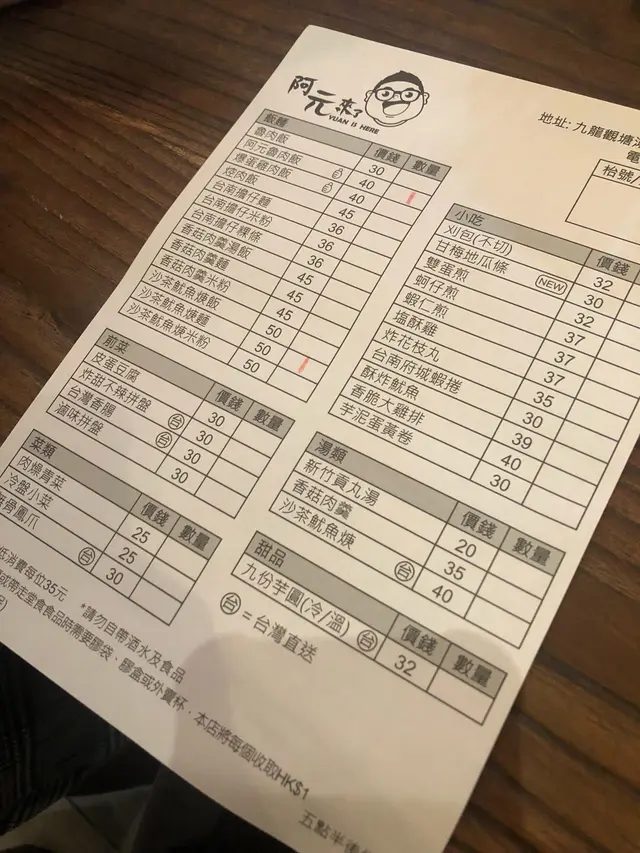 阿元來了
YUAN IS HERE
地址: 九龍觀塘
電
枱號
飯麵 價錢 數量
魯肉飯 30
阿元魯肉飯 40
爆蛋雞肉飯 40
焢肉飯 45
台南擔仔麵 36
台南擔仔米粉 36
台南擔仔粿條 36
香菇肉羹湯飯 45
香菇肉羹麵 45
香菇肉羹米粉 45
沙茶魷魚焿飯 50
沙茶魷魚焿麵 50
沙茶魷魚焿米粉 50
前菜 價錢 數量
皮蛋豆腐 30
炸甜不辣拼盤 台 30
台灣香腸 台 30
滷味拼盤 30
菜類 價錢 數量
肉燥青菜 25
冷盤小菜 25
無骨鳳爪 台 30
小吃 價錢
刈包(不切) 32
甘梅地瓜條 30
雙蛋煎 NEW 32
蚵仔煎 37
蝦仁煎 37
塩酥雞 37
炸花枝丸 35
台南府城蝦捲 30
酥炸魷魚 39
香脆大雞排 40
芋泥蛋黃卷 30
湯類 價錢 數量
新竹貢丸湯 20
香菇肉羹 35
沙茶魷魚焿 台 40
甜品 價錢 數量
九份芋圓(冷/溫) 台 32
台 = 台灣直送
低消費每位35元
*請勿自帶酒水及食品
或帶走堂食食品時需要膠袋、膠盒或外賣杯，本店將每個收取HK$1
五點半後